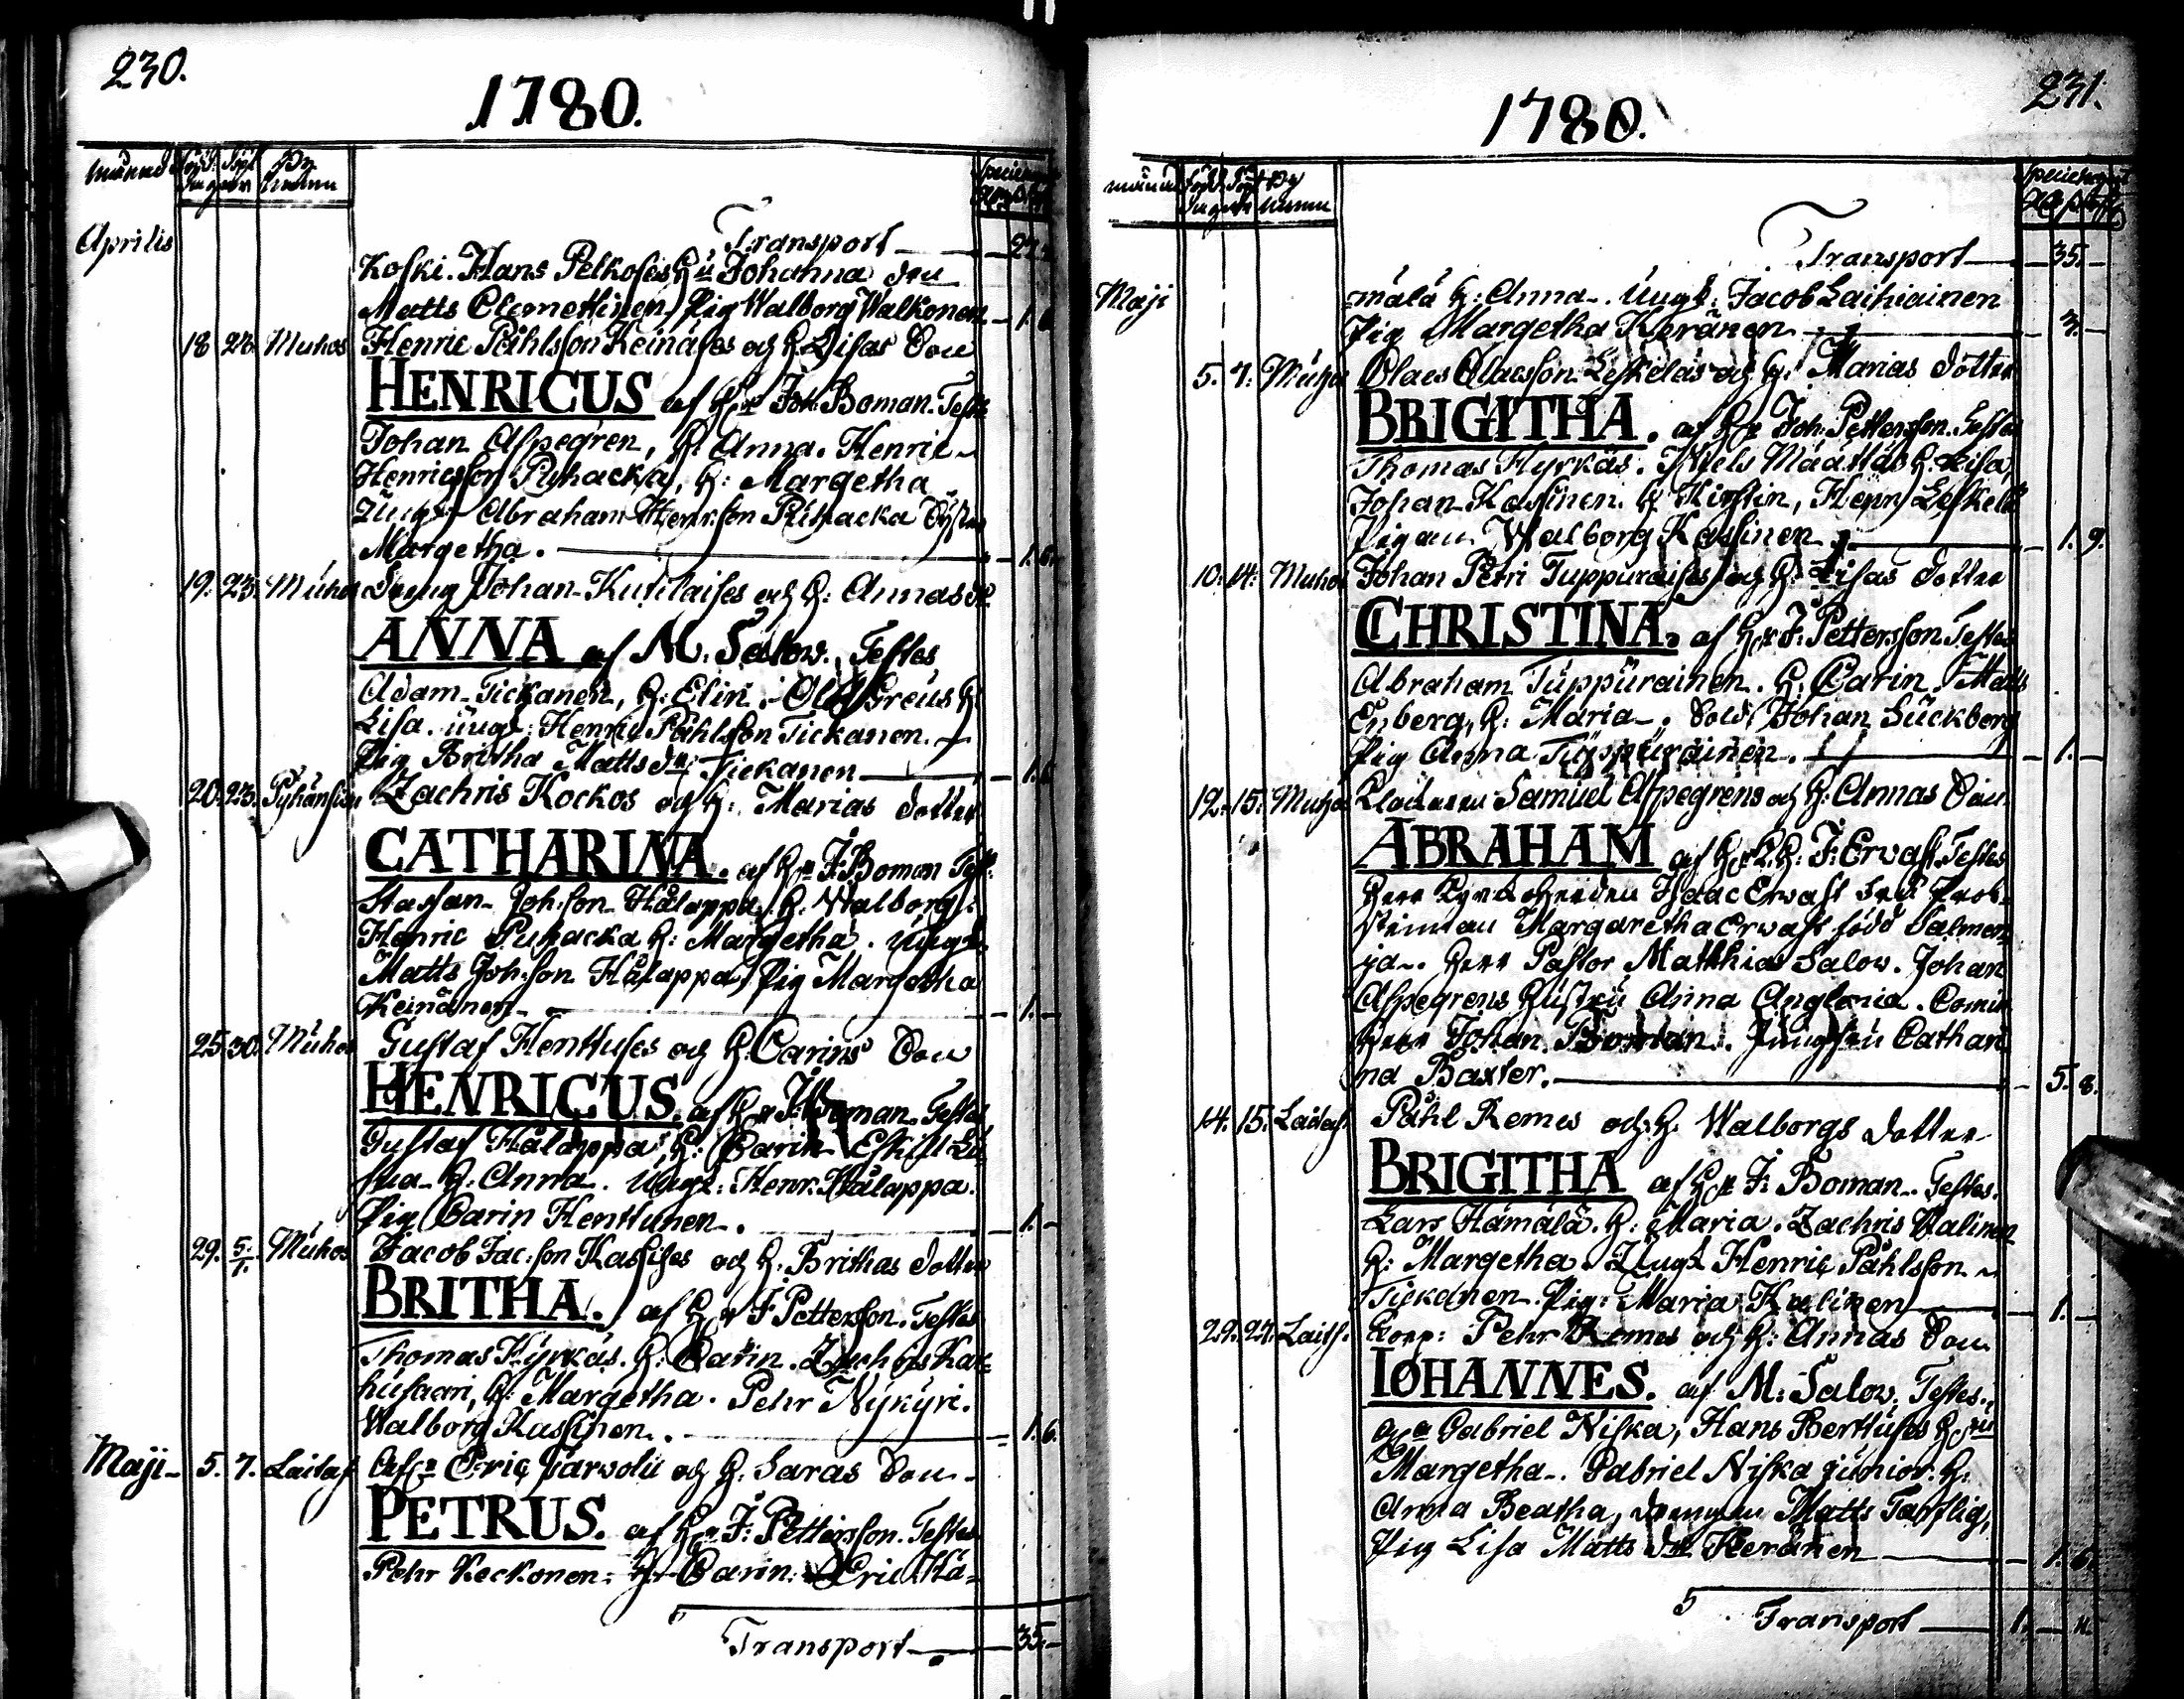 230.
1780.
månad Född Döpt By
dagar namn
Aprilis
Transport
Koski. Hans Pelkoses H:u Johanna
Matts Clemettinen, Pig Walborg Walkonen 1. 6
18 23. Muhos Henric Påhlsson Keinäses och H: Lisas Son
HENRICUS af H:r Joh: Boman. Test:
Johan Aspegren, H: Anna. Henric
Henricsson Puhacka, H: Margetha
Abraham Henr:son Puhacka
Margetha. 1. 6.
19. 23. Muhos Dreng Johan Kutilaises och H: Annas
ANNA af M. Salow. Testes
Adam Tickanen, H: Elin. Greus H:
Lisa. ungk: Henric Påhlsson Tickanen.
Pig Britha Matts dr Tickanen 1. 6
20. 23. Zachris Kockos och H: Marias dotter
CATHARINA. af H:r J: Boman Test:
Staffan Joh:son Hålappa, H: Walborg:
Henric Puhacka H: Margetha. ungk:
Matts Joh:son Hålappa, Pig Margetha
Keinänen 1. –
25 30. Muhos Gustaf Henttuses och H: Carins Son
HENRICUS. af H:r J: Boman. Testes
Gustaf Hålappa, H: Carin Eskill
H: Anna. Ungk: Henr. Hålappa.
Pig Carin Henttunen. 1. –
29. 5/7. Muhos Jacob Jac:son Kassises och H: Brithas dotter
BRITHA. af H:r J: Petterson. Testes
Thomas Hyrkäs. H: Carin. Zachris Kar=
husaari, H: Margetha. Pehr Nykyri.
Walborg Kassinen. 1. 6.
Maji 5. 7. Laitas. Eric Järwolu och H: Saras Son
PETRUS. af H:r J: Petterson. Testes
Pehr Keckonen: H: Carin: Eric Hä=
Transport 35.
231.
1780.
månad Född Döpt By
dagar namn
Transport 35. –
Maji mälä H: Anna. Ungk: Jacob Laihiainen
Pig Margetha Keränen 3. –
5. 7. Muhos Olaes Olaesson Leskeläs och H: Marias dotter
BRIGITHA. af H:r Joh: Petterson. Testes
Thomas Hyrkäs. Niels Määttäs H: Lisa,
Johan Kassinen. H: Kirstin, Henr: Leskelä
Pigan Walborg Kassinen 1. 9.
10. 14. Muhos Johan Petri Tuppuraises och H: Lisas dotter
CHRISTINA. af H:r J: Petterson Testes
Abraham Tuppurainen. H: Carin. Matts
Enberg, H: Maria. Sold: Johan Suckberg
Pig Anna Tuppurainen. 1. –
12. 15. Muhos Samuel Aspegrens och H: Annas Son
ABRAHAM af H:r J: Ervast. Testes
Herr Kyrckoherden Isaac Ervast Prob=
stinnan Margaretha Ervast född Salmen=
ja. Herr Pastor Matthias Salow. Johan
Aspegrens Hustru Anna Anglenia. Comin:
Herr Johan Boman. Jungfru Cathari
na Baxter. 5. 8.
14. 15. Laitas. Påhl Remes och H: Walborgs dotter
BRIGITHA af H:r J: Boman. Testes.
Lars Hämälä. H: Maria. Zachris Kalinen
H: Margetha. Ungk: Henric Påhlsson
Tickanen. Pig: Maria Kalinen 1. –
22. 27. Laits. Corp: Pehr Remes och H: Annas Son
IOHANNES. af M: Salow. Testes.
Gabriel Niska, Hans Berttuses H:ru
Margetha. Gabriel Niska junior. H:
Anna Beatha, drengen Matts Tarflig,
Pig Lisa Matts dr Keränen 1. 6.
Transport 1.